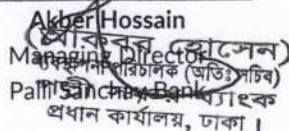 Akber Hossain
(আকবর হোসেন)
Managing Director
ব্যবস্থাপনা পরিচালক (অতিঃ সচিব)
Palli Sanchay Bank
পল্লী সঞ্চয় ব্যাংক
প্রধান কার্যালয়, ঢাকা।